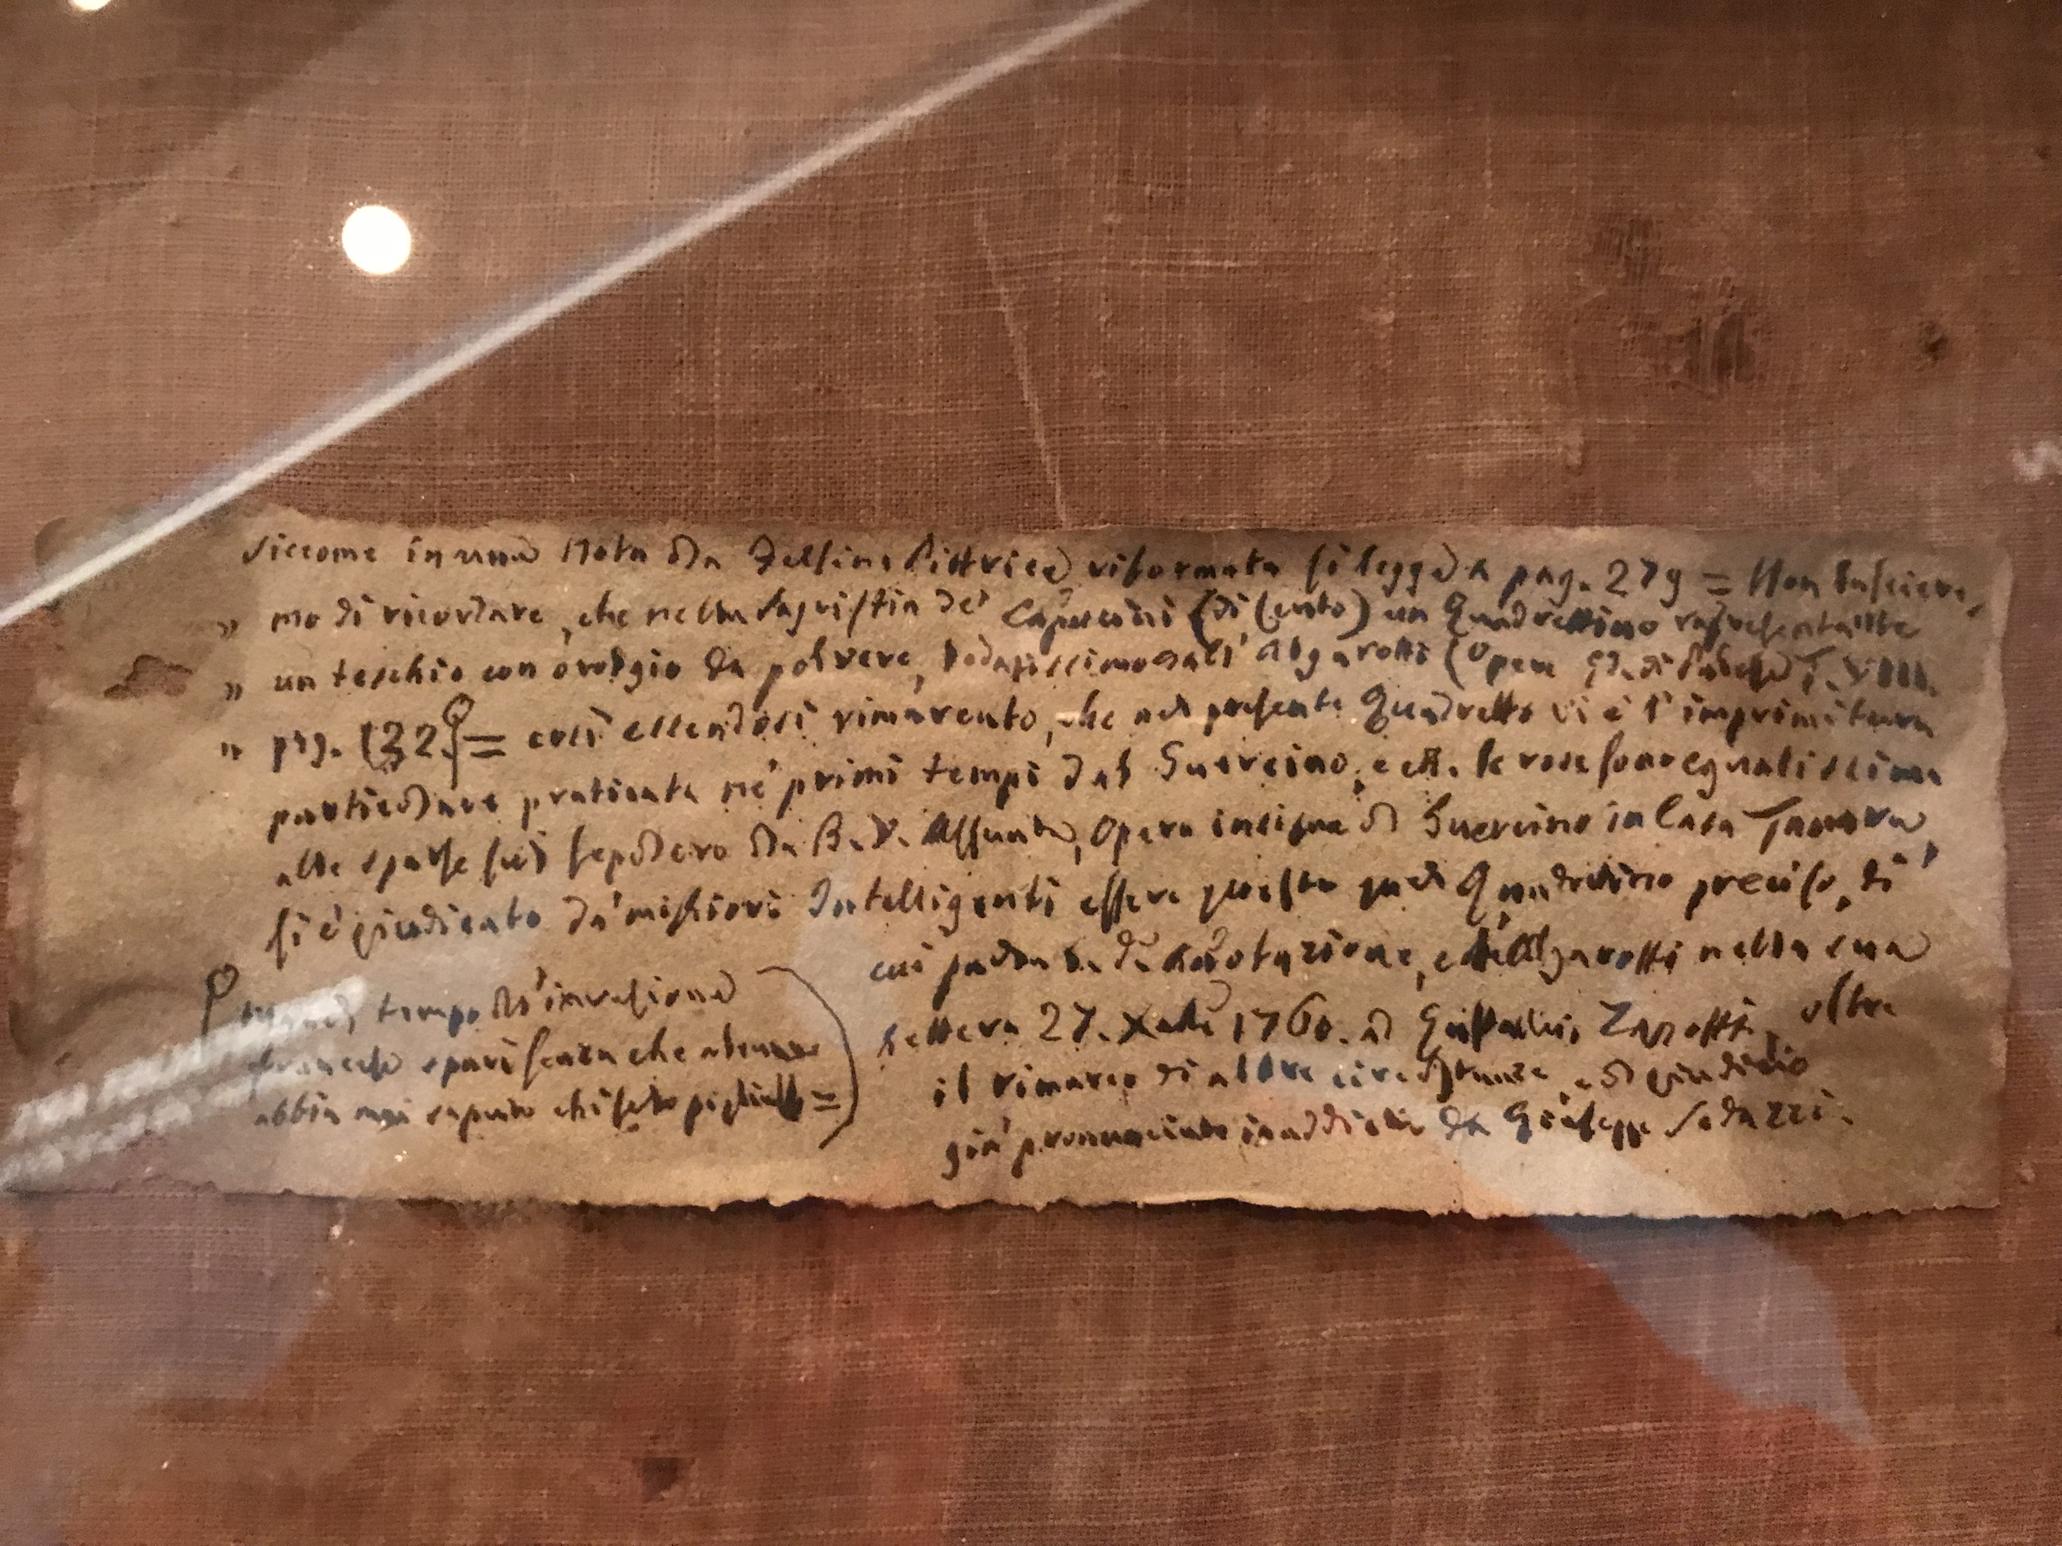 Siccome in una Nota Da Felsina Pittrice riformata si legge a pag. 279 = Non lasciere,
" mo di ricordare, che nella Sagristia de' Capuccini (di Cento) un Quadrettino rappresentante
" un teschio con orologio da polvere, lodatissimo dall' Algarotti (Opere T. VIII.
" pag. 132 = così essendosi rimarcato, che nel presente Quadretto vi è l'imprimitura
particolare praticata ne' primi tempi dal Guercino, e che le rose sono egualissime
alle sparse sul sepolcro Da B. V. Assunta, Opera insigne di Guercino in Casa Tanara,
si è giudicato da' migliori Intelligenti essere questo quel Quadrettino preciso, di
cui parla annotazione, e l'Algarotti nella sua
lettera 27. Xbre 1760. a Zanotti, oltre
il rimarco di altre circostanze, e di giudizio
già pronunciato da Giuseppe Sedazzi.
tempo invasione
francese sparì senza che alcuno
abbia mai saputo chi selo pigliasse =